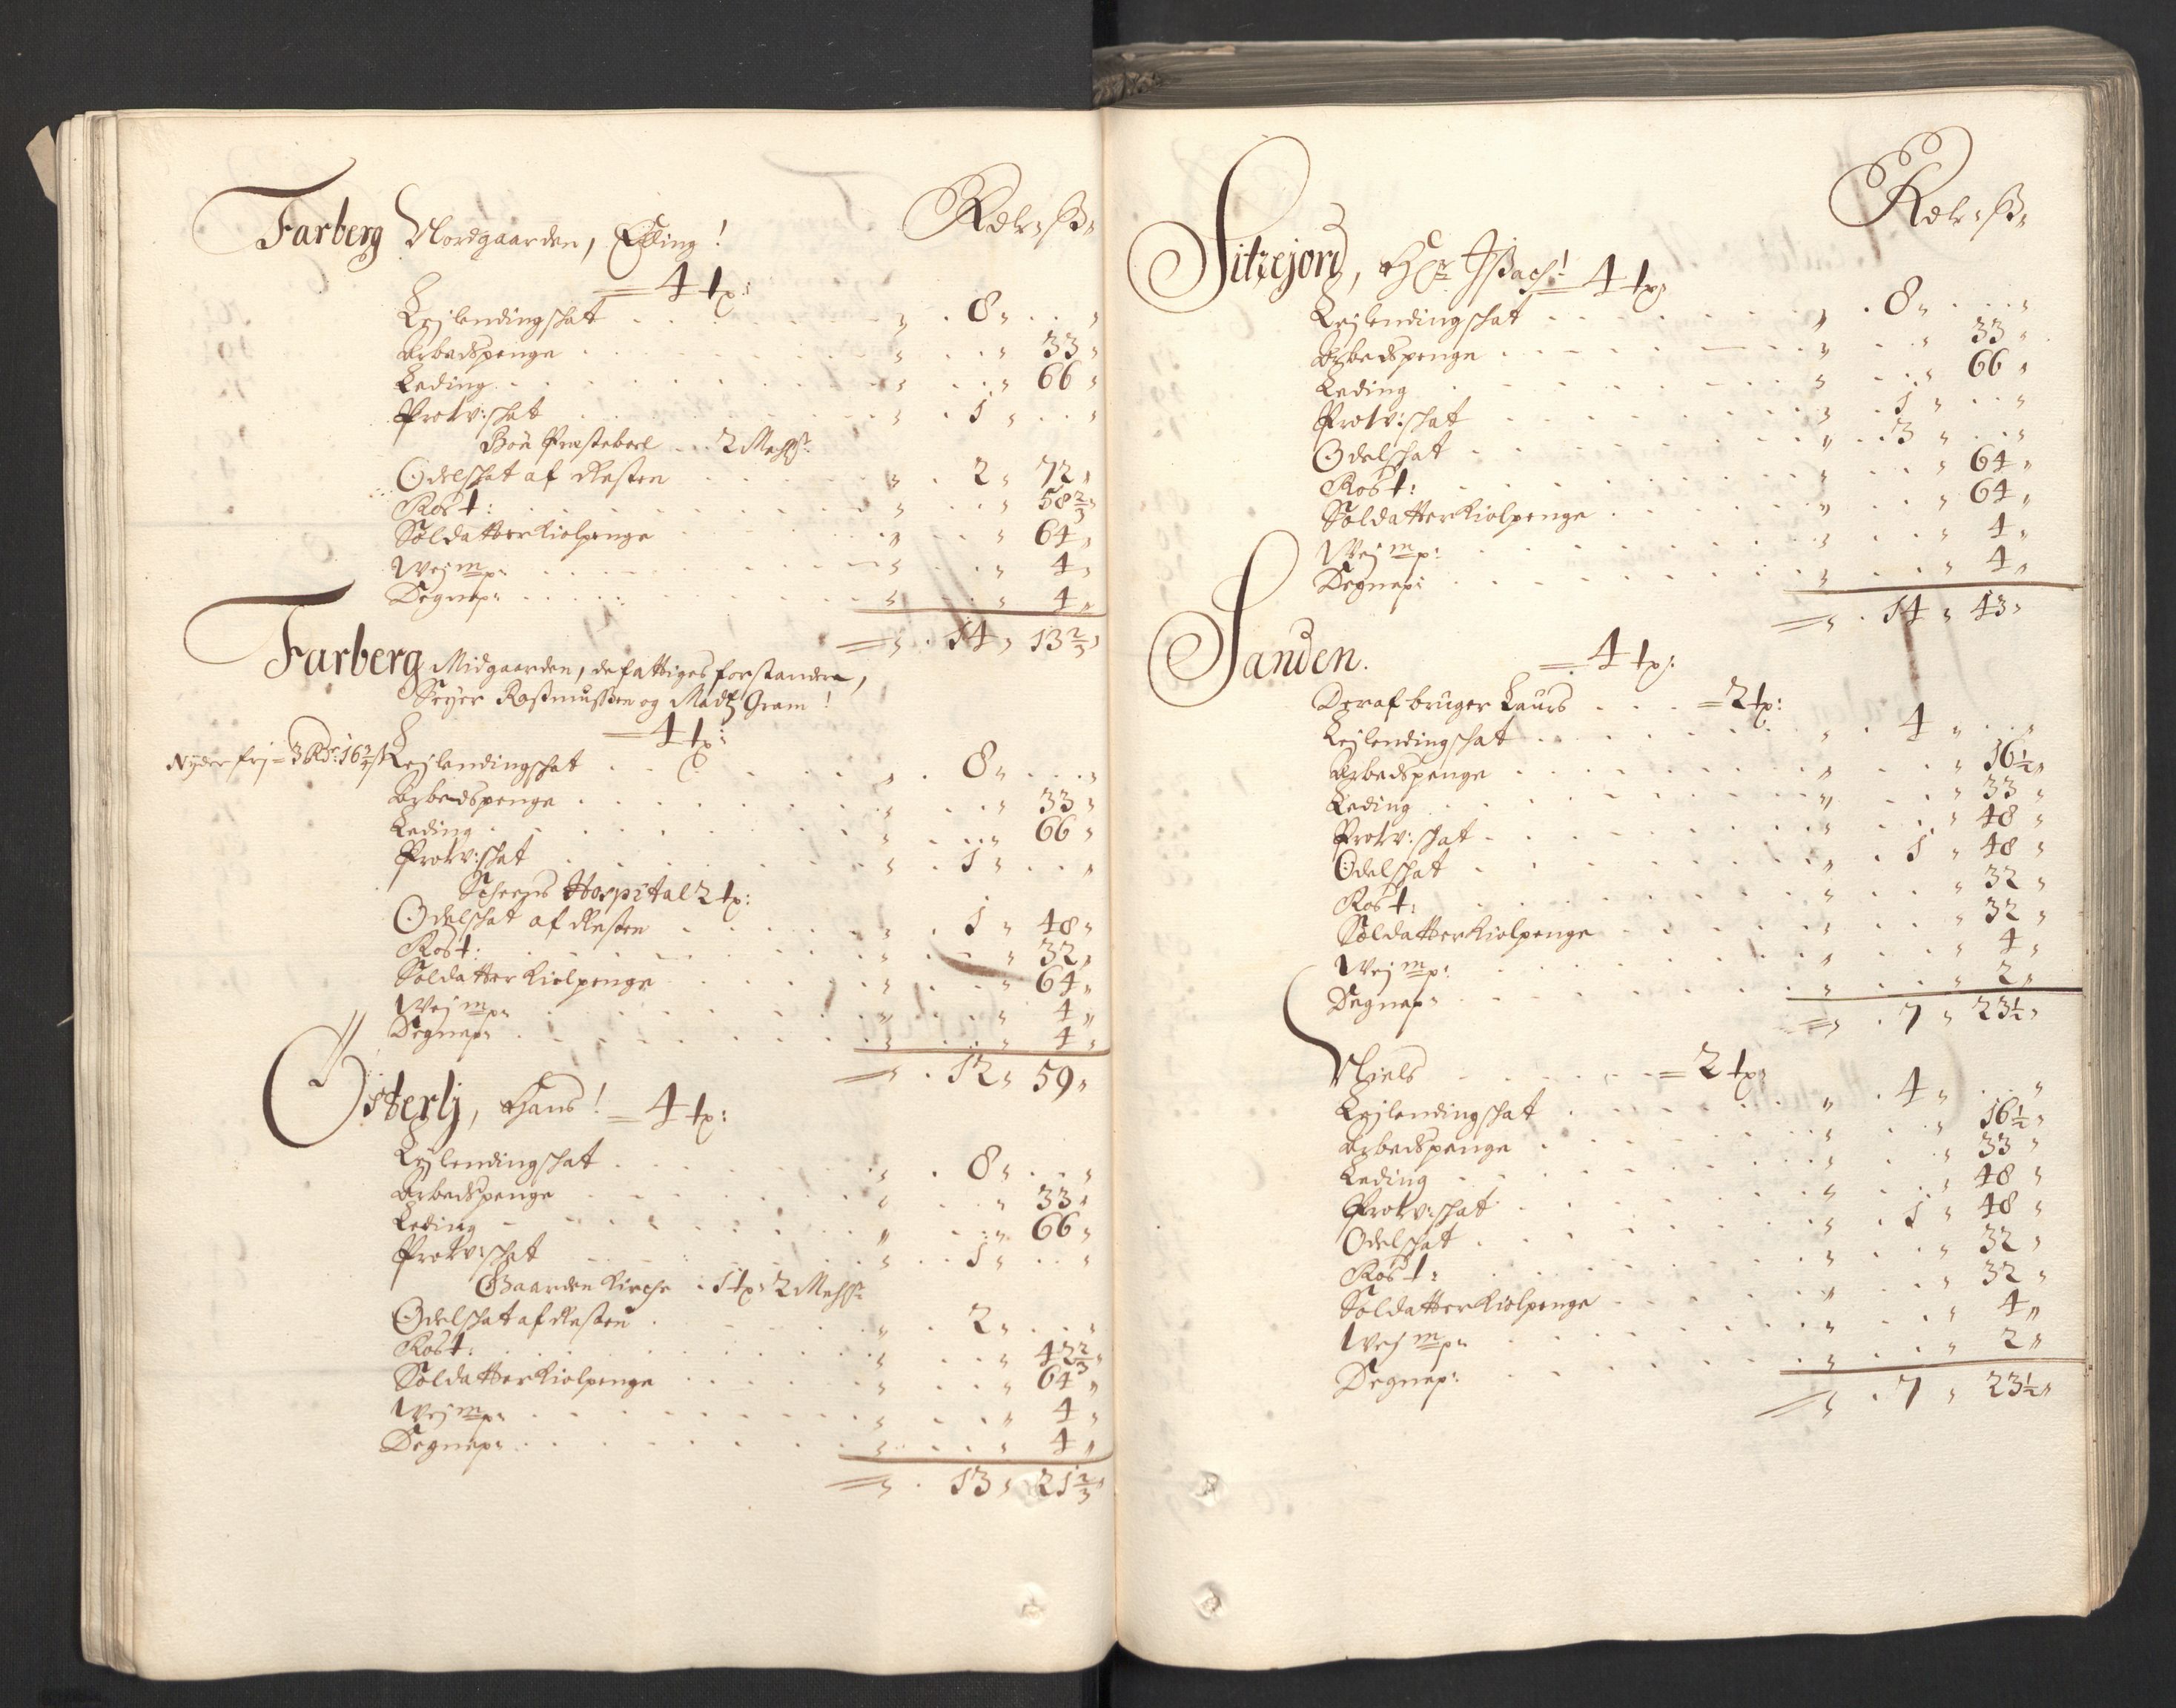 Rdlr: ß:
Farberg Nordgaarden, Elling!
= 4 tp:
Lejlendingschat 8 „ „
Arbedspenge „ 33 „
Leding „ 66 „
Protv:schat 1 „ „
Böe Præsteboel 2 Mehls:
Odelschat af Resten 2 „ 72 „
Ros t: „ 58 2/3 „
Soldatter Kiolpenge „ 64 „
Wej m p: „ 4 „
Degnep: „ 4 „
14 „ 13 2/3 „
Farberg Midgaarden, de fattiges forstandere,
Seyer Rasmussen og Madtz Gram!
= 4 tp:
Nyder frj = 3 Rdr: 16 3/4 ß Lejlendingschat 8 „ „
Arbedspenge „ 33 „
Leding „ 66 „
Protv:schat 1 „ „
Scheens Hospital 2 tp:
Odelschat af Resten 1 „ 48 „
Ros t: „ 32 „
Soldatter Kiolpenge „ 64 „
Wej m p: „ 4 „
Degnep: „ 4 „
12 „ 59 „
Österlj, Hans! = 4 tp:
Lejlendingschat 8 „ „
Arbedspenge „ 33 „
Leding „ 66 „
Protv:schat 1 „ „
Gaarden Kirche 1 tp: 2 Mehls:
Odelschat af Resten 2 „ „
Ros t: „ 42 2/3 „
Soldatter Kiolpenge „ 64 „
Wej m p: „ 4 „
Degnep: „ 4 „
13 „ 21 2/3 „
Rdlr: ß:
Sitrejord, Hr Ißach! = 4 tp:
Lejlendingschat 8 „ „
Arbedspenge „ 33 „
Leding „ 66 „
Protv:schat 1 „ „
Odelschat 3 „ „
Ros t: „ 64 „
Soldatter Kiolpenge „ 64 „
Wej m p: „ 4 „
Degnep: „ 4 „
14 „ 43 „
Sanden. = 4 tp:
Deraf bruger Laurs = 2 tp:
Lejlendingschat 4 „ „
Arbedspenge „ 16 1/2 „
Leding „ 33 „
Protv:schat „ 48 „
Odelschat 1 „ 48 „
Ros t: „ 32 „
Soldatter Kiolpenge „ 32 „
Wej m p: „ 4 „
Degnep: „ 2 „
7 „ 23 1/2 „
Niels = 2 tp:
Lejlendingschat 4 „ „
Arbedspenge „ 16 1/2 „
Leding „ 33 „
Protv:schat „ 48 „
Odelschat 1 „ 48 „
Ros t: „ 32 „
Soldatter Kiolpenge „ 32 „
Wej m p: „ 4 „
Degnep: „ 2 „
7 „ 23 1/2 „